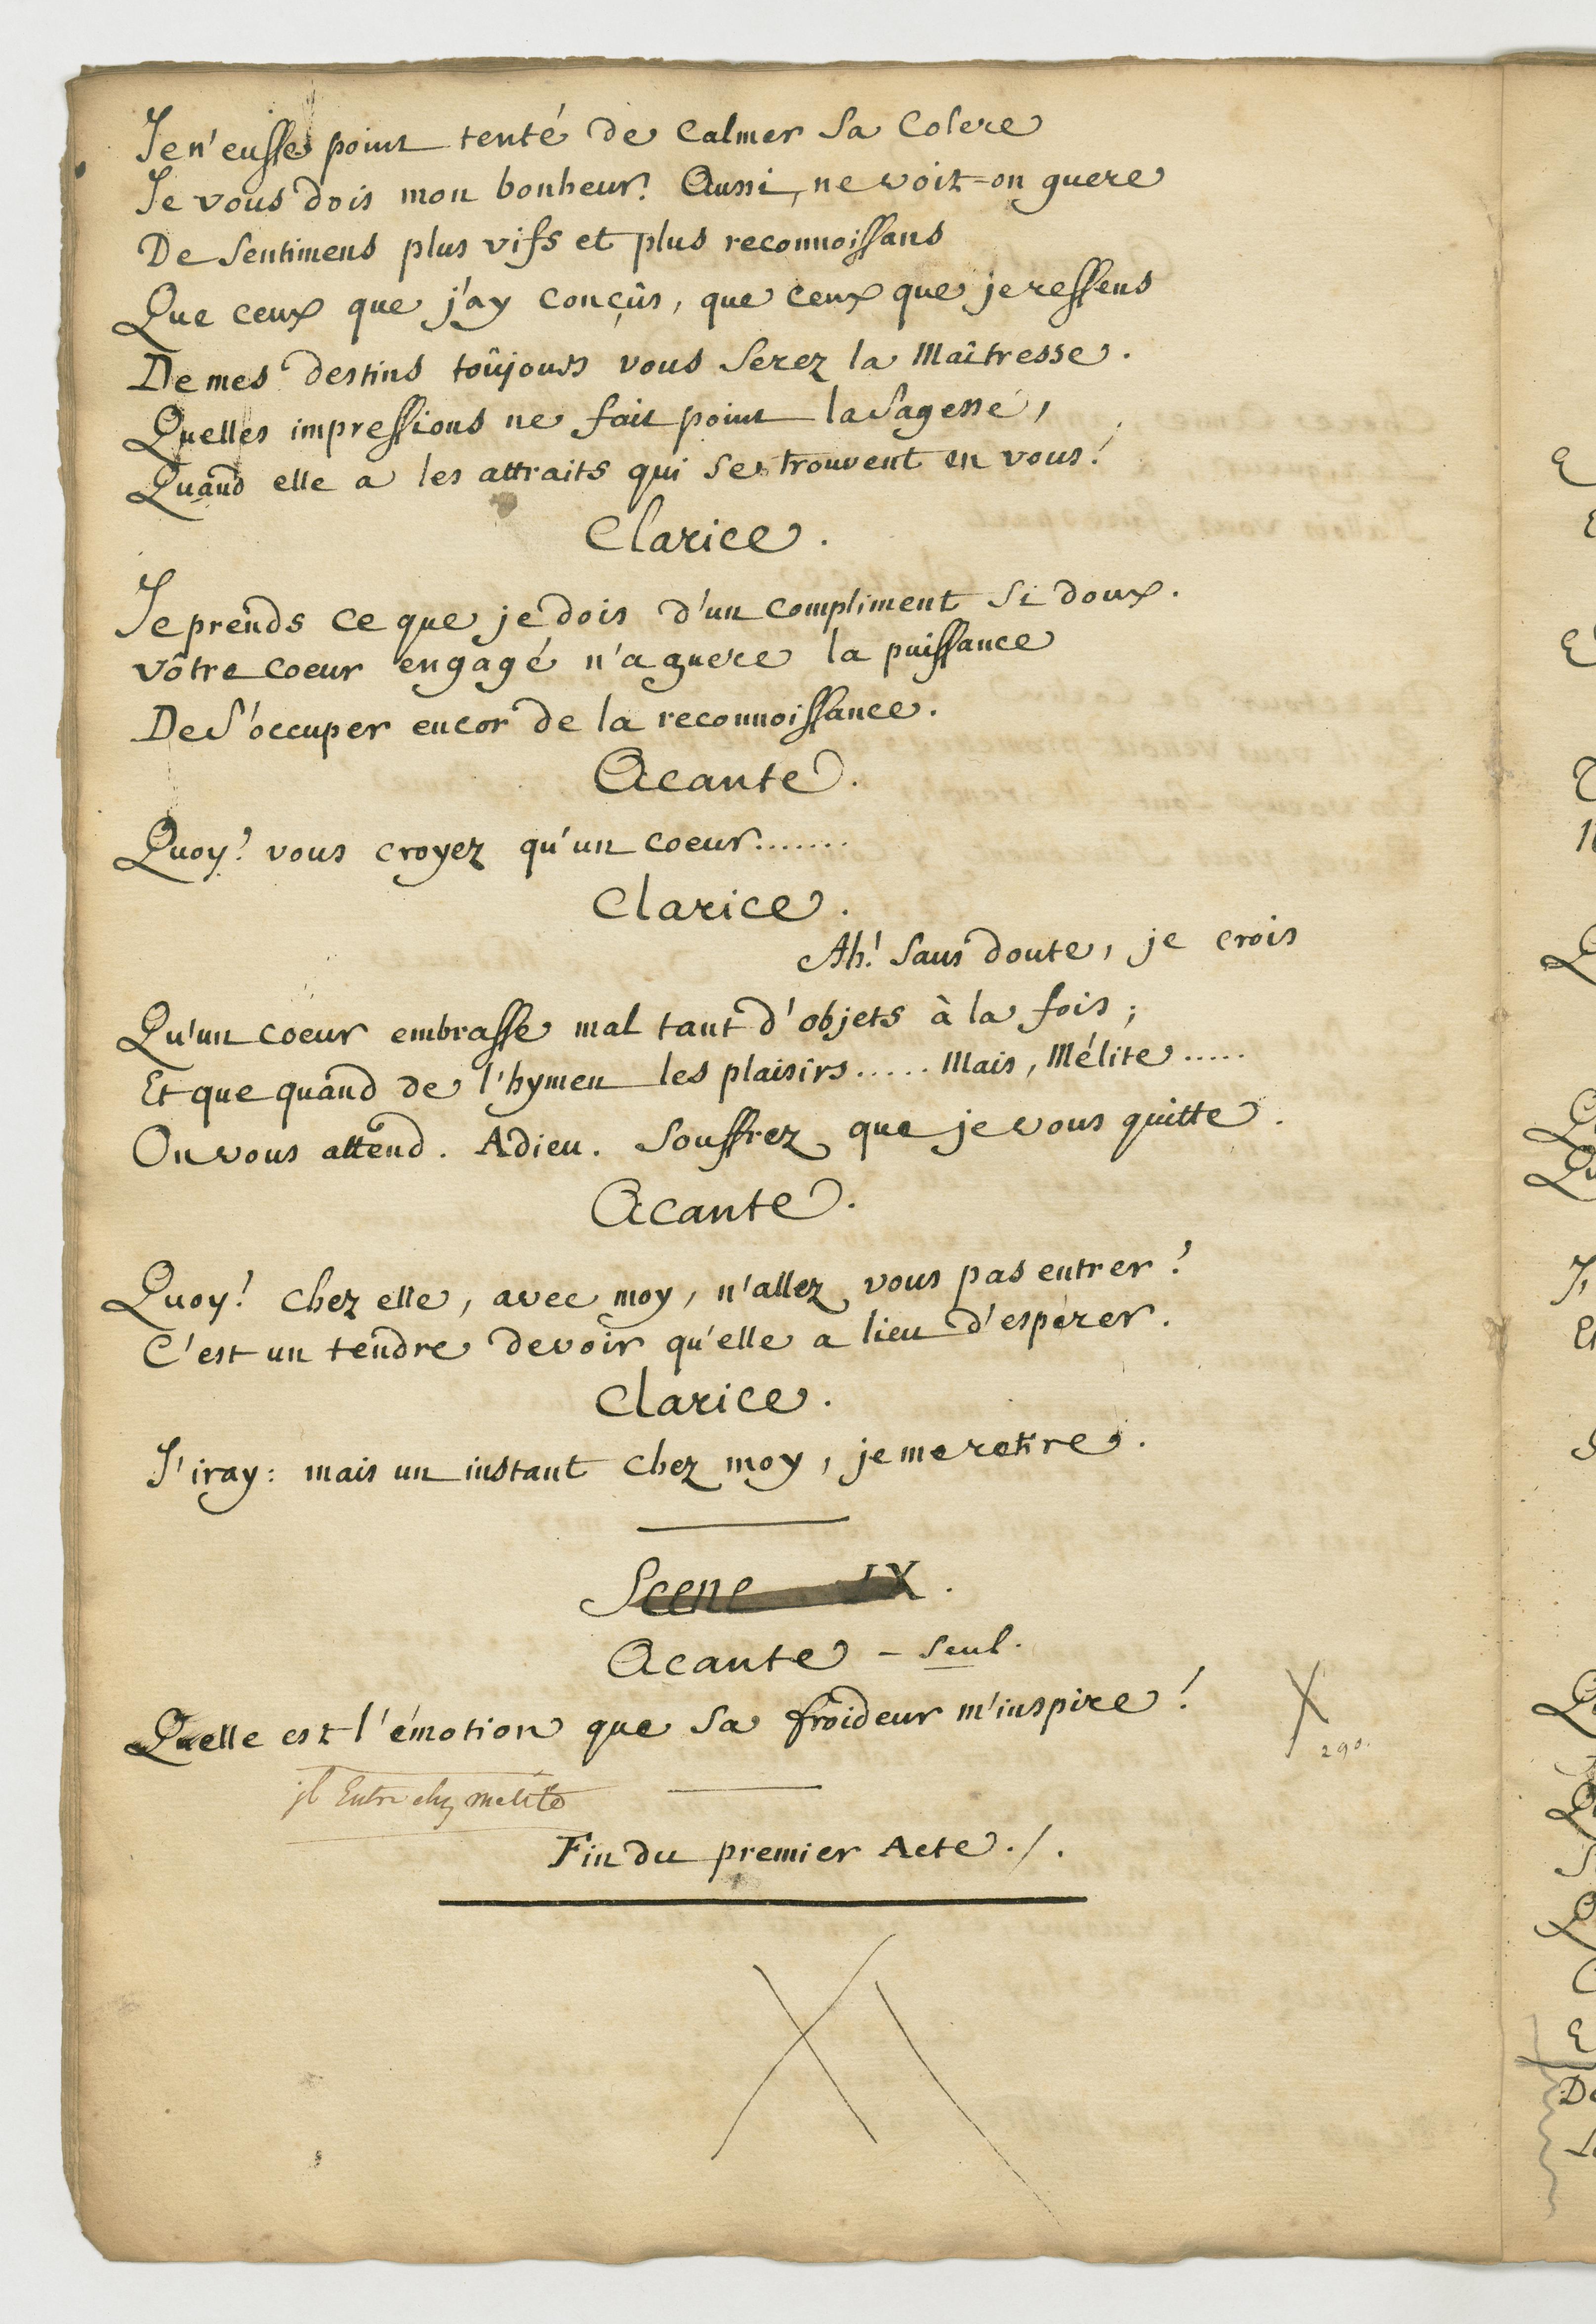 Je n'eusse point tenté de calmer sa colere
Je vous dois mon bonheur! Aussi, ne voit=on guere
De sentimens plus vifs et plus reconnoissans
Que ceux que j'ay conçûs, que ceux que je ressens
De mes destins toûjours vous serez la Maîtresse.
Quelles impressions ne fait point la sagesse,
Quand elle a les attraits qui se trouvent en vous!
Clarice.
Je prends ce que je dois d'un compliment si doux.
vôtre coeur engagé n'a guere la puissance
De s'occuper encor de la reconnoissance.
Acante.
Quoy! vous croyez qu'un coeur.......
Clarice.
Ah! sans doute, je crois
Qu'un coeur embrasse mal tant d'objets à la fois;
Et que quand de l'hymen les plaisirs..... Mais, Mélite.....
On vous attend. Adieu. Souffrez que je vous quitte.
Acante.
Quoy! chez elle, avec moy, n'allez vous pas entrer!
C'est un tendre devoir qu'elle a lieu d'espérer.
Clarice.
J'iray: mais un instant chez moy, je me retire.
Scene IX.
Acante - seul.
Quelle est l'émotion que sa froideur m'inspire!
X
290.
jl Entre chez melite
Fin du premier Acte./.